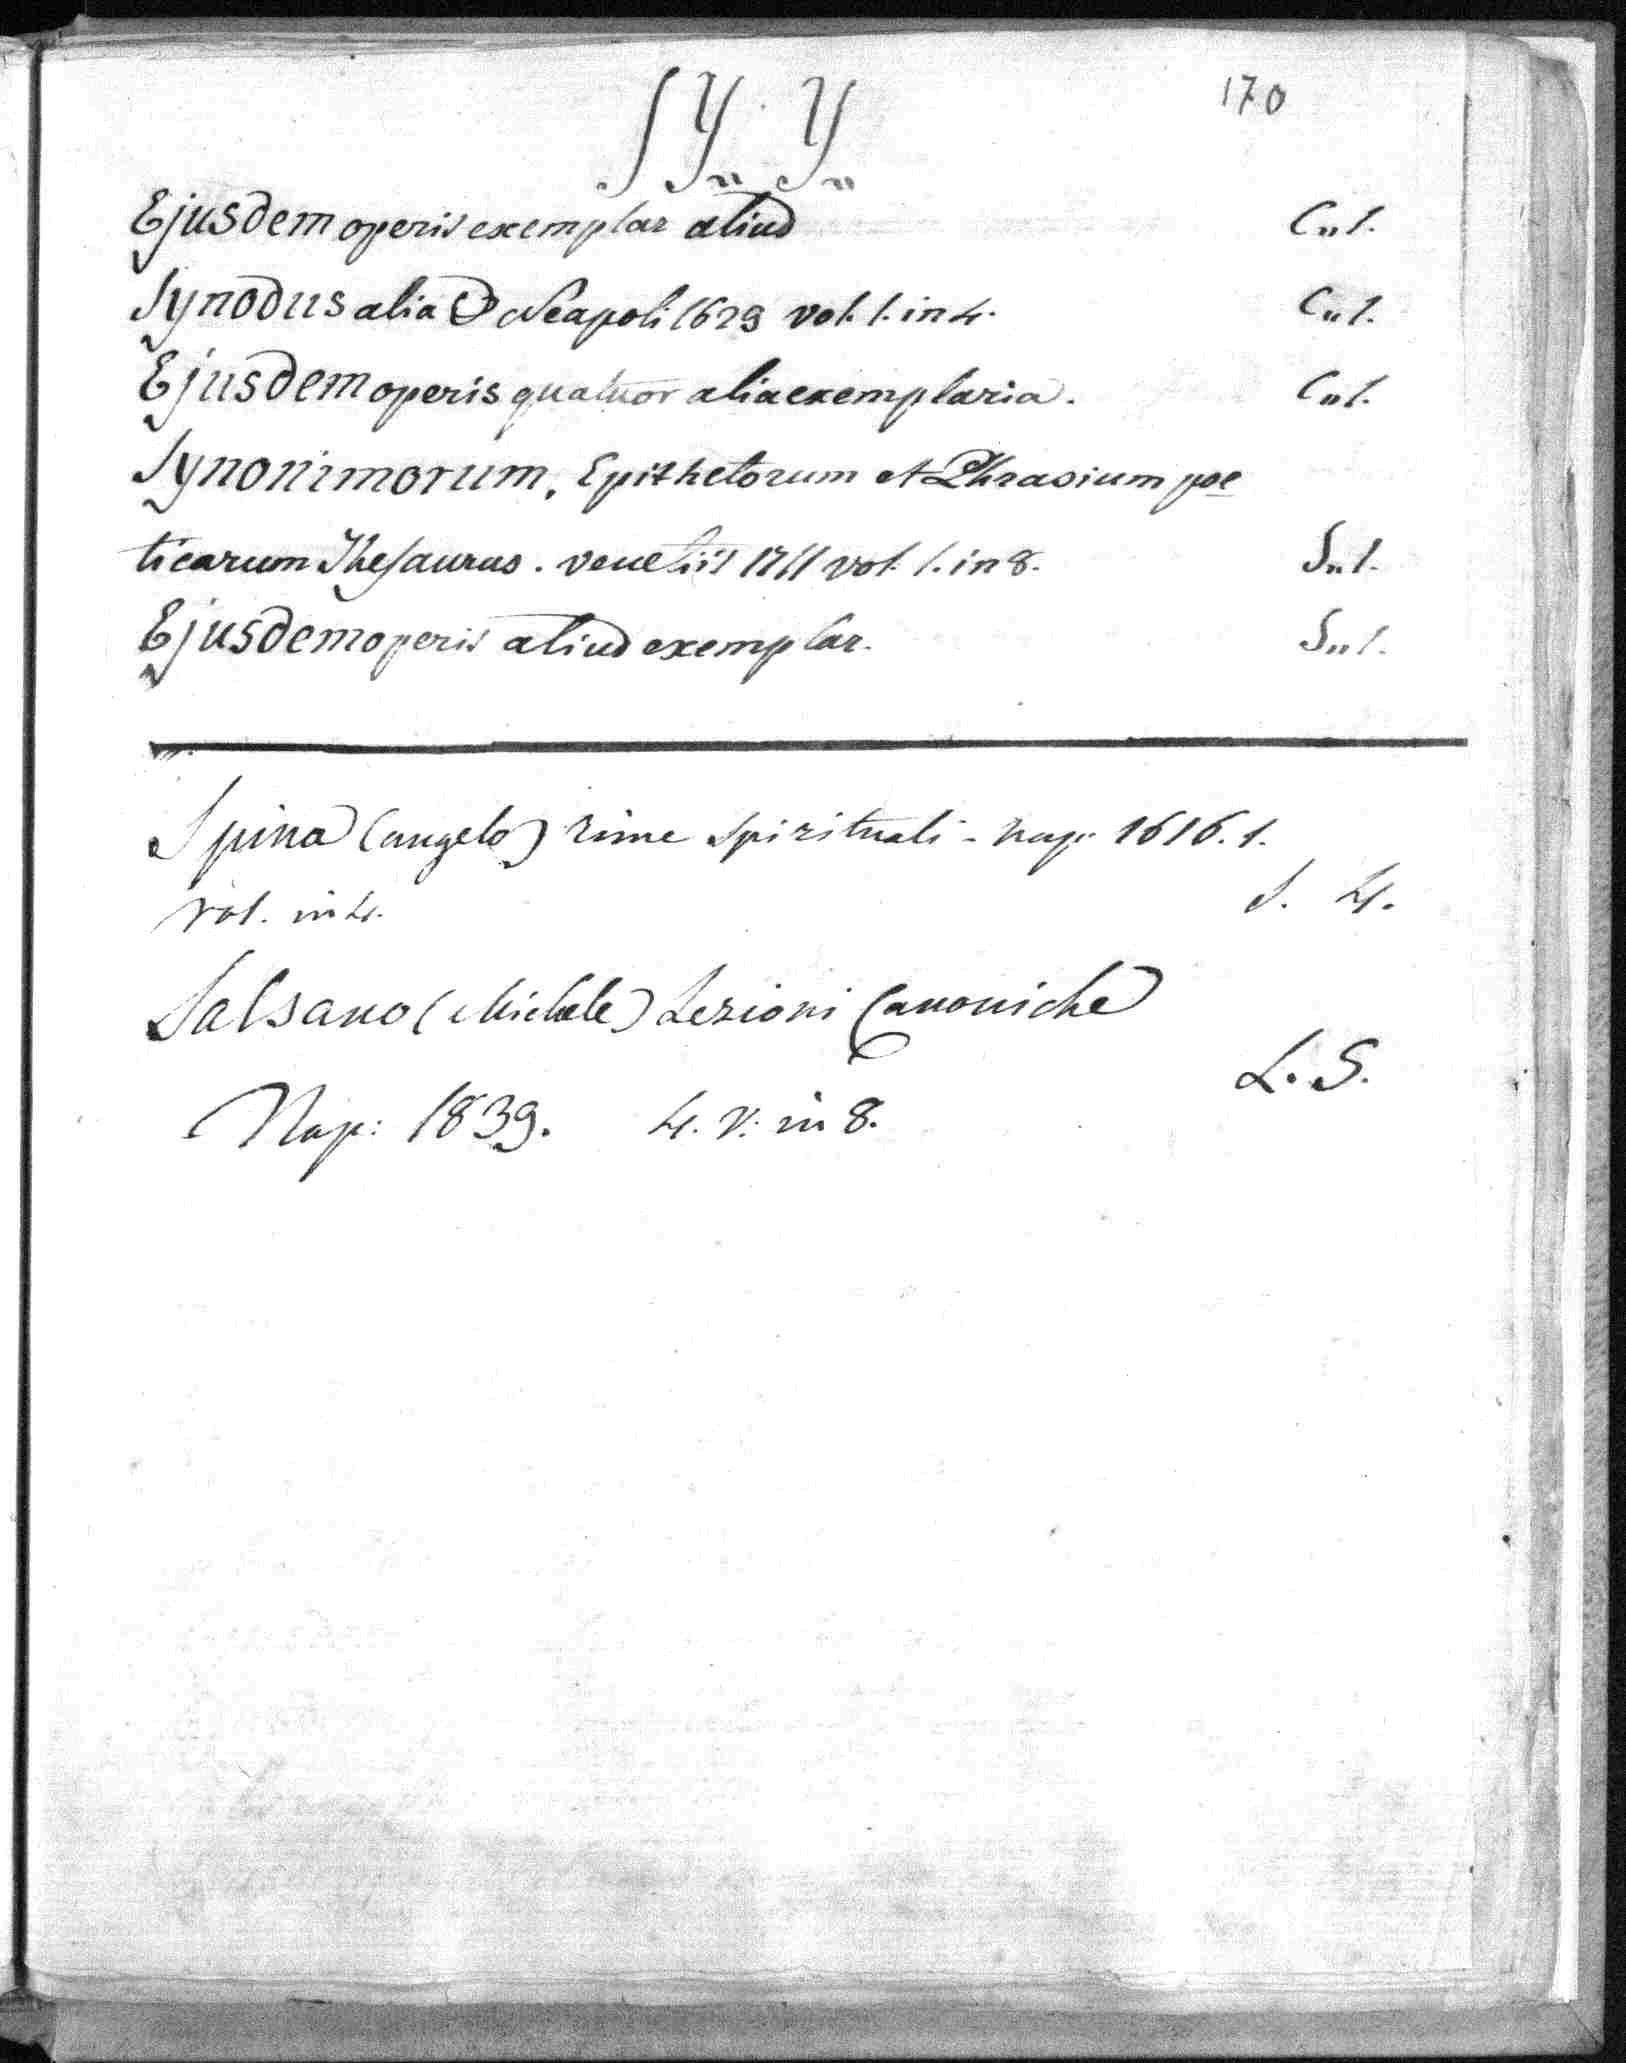 170
SY„ Y„
Ejusdem operis exemplar aliud C„1.
Synodus alia Neapoli 1629 vol. 1. in 4. C„1.
Ejusdem operis quatuor alia exemplaria. C„1.
Synonimorum, Epithetorum et Phrasium poe
ticarum Thesaurus. venetiis 1711 vol. 1. in 8. S„1.
Ejusdem operis aliud exemplar. S„1.
Spina (angelo) rime spirituali - nap. 1616. 1.
vol. in 4. S. 4.
Salsano (Michele) Lezioni Canoniche
L. S.
Nap: 1839. 4. v: in 8.